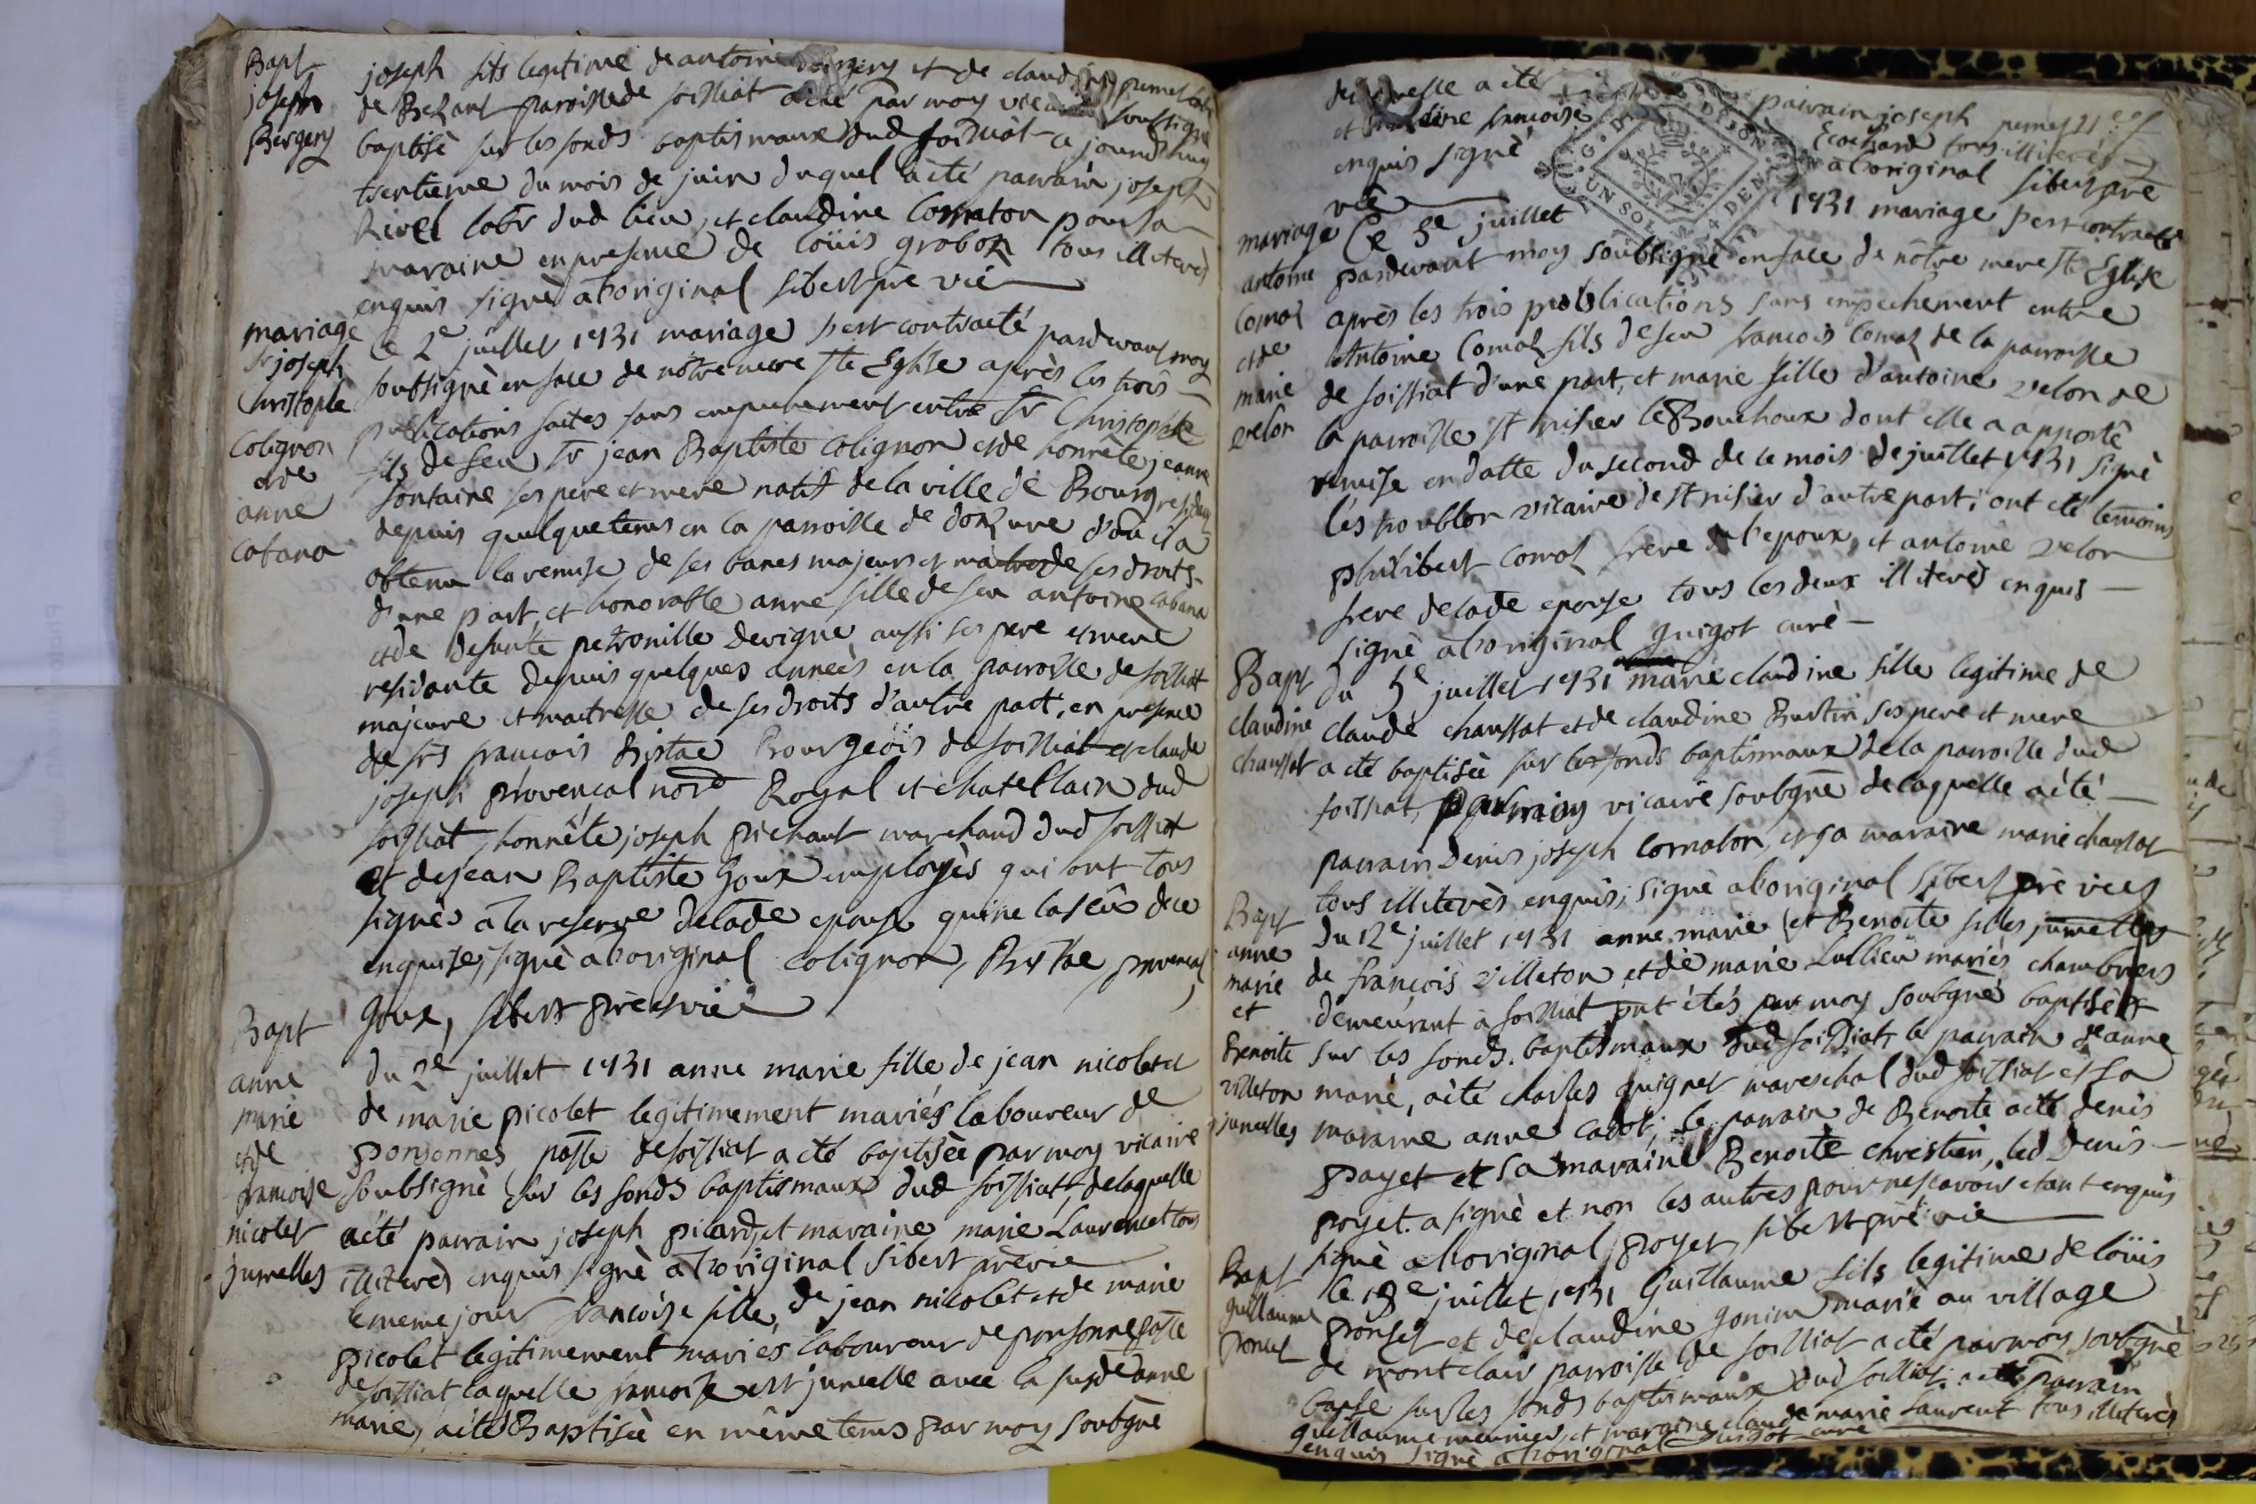 Bapt
joseph
Bergery
joseph fils legitime de antoine bergery et de claudine
de Bezant parroisse de soissiat a été par moy vicaire soussigné
baptisè sur les fonds baptismaux dud soissiat ajourdhuy
trentieme du mois de juin duquel a èté parrain joseph
Rivel labr dud lieu, et claudine Comaton pour sa
maraine en presence de loüis grobon tous illiterès
enquis signè a l'original sibert prè viè
mariage
sr joseph
Christophle
Colignon
et de
anne
Cabana
le 2e juillet 1731 mariage s'est contracté pardevant moy
soubsignè en face de nôtre mere ste Eglise après les trois
publications faites sans empechement entre Sr Christophle
fils de feu Sr jean Baptiste Colignon et de honnête jeanne
fontaine ses pere et mere natif de la ville de Bourg residant
depuis quelque tems en la parroisse de donzure d'où il a
obtenu la remise de ses bancs majeur et maitre de ses droits
d'une part, et honorable anne fille de feu antoine Cabana
et de defunte petronille devigne aussi ses pere et mere
residante depuis quelques années en la parroisse de soissiat
majeure et maitresse de ses droits d'autre part, en presence
de srs francois Bistac Bourgeois de soissiat et claude
joseph provencal nore Royal et chatellain dud
soissiat, honnête joseph prehaut marchand dud soissiat
et de jean Baptiste Goux employès qui ont tous
signè a la reserve de lade epouse qui ne la sçû de ce
enquise, signè a l'original colignon, Bistac, provencal
Goux, sibert prè et vic
Bapt
anne
marie
et de
francoise
nicolet
jumelles
du 2e juillet 1731 anne marie fille de jean nicolet et
de marie picolet legitimement mariés laboureur de
ponsonnes passe de soissiat a été baptisèe par moy vicaire
soubsignè sur les fonds baptismaux dud soissiat, de laquelle
a èté parrain joseph picard, et maraine marie Laurencet tous
illiterès enquis signè a l'original sibert prè vic
le meme jour francoise fille, de jean nicolet et de marie
picolet legitimement mariés laboureur de ponsonne passe
de soissiat laquelle francoise est jumelle avec la susde anne
marie, a été Baptisèe en même tems par moy soubgnè
de laquelle a été parrain joseph
et francoise Ecochard tous illiterès
enquis signè a l'original sibert prè
vic
mariage
antoine
Comas
et de
marie
velon
Ce 3e juillet 1731 mariage s'est contracté
pardevant moy soubsigné en face de nôtre mere ste Eglise
après les trois publications sans empechement entre
Antoine Comas fils de feu francois Comas de la parroisse
de soissiat d'une part, et marie fille d'antoine velon de
la parroisse st nisier le Bouchoux dont elle a apporté
remise en datte du second de ce mois de juillet 1731 signè
vicaire de st nisier d'autre part; ont eté temoins
philibert Comas frere de l'epoux, et antoine velon
frere de lade epouse tous les deux illiterés enquis
signè a l'original guigot curè
Bapt
claudine
chaussat
du 5e juillet 1731 marie claudine fille legitime de
claude chaussat et de claudine Burtin ses pere et mere
a été baptisèe sur les fonds baptismaux de la parroisse dud
soissiat, par moy vicaire soubgnè de laquelle a été
parrain denis joseph Comaton, et sa maraine marie chaussat
tous illiterès enquis, signè a l'original sibert prè vic
Bapt
anne
marie
et
Benoite
villeton
jumelles
Du 12e juillet 1731 anne marie et Benoite filles jumelles
de françois villeton et de marie Lullieu mariès chambriers
demeurant à soissiat ont étés par moy soubgnè baptisèes
sur les fonds baptismaux dud soissiat, le parrain d'anne
marie, a èté charles guignet mareschal dud soissiat et sa
maraine anne cadot; le parrain de Benoite a été denis
poyet et sa maraine Benoite chrestien, led denis
poyet a signè et non les autres pour ne sçavoir etant enquis
signè a l'original poyet sibert prè vic
Bapt
guillaume
poncet
le 18e juillet 1731 Guillaume fils legitime de loüis
ponset et de claudine gonin mariè au village
de montclair parroisse de soissiat a èté par moy soubgnè
baptsé sur les fonds baptismaux dud soissiat, a été parrain
guillaume meunier, et maraine claude marie Laurent tous illiterès
enquis signè a l'original guigot curè